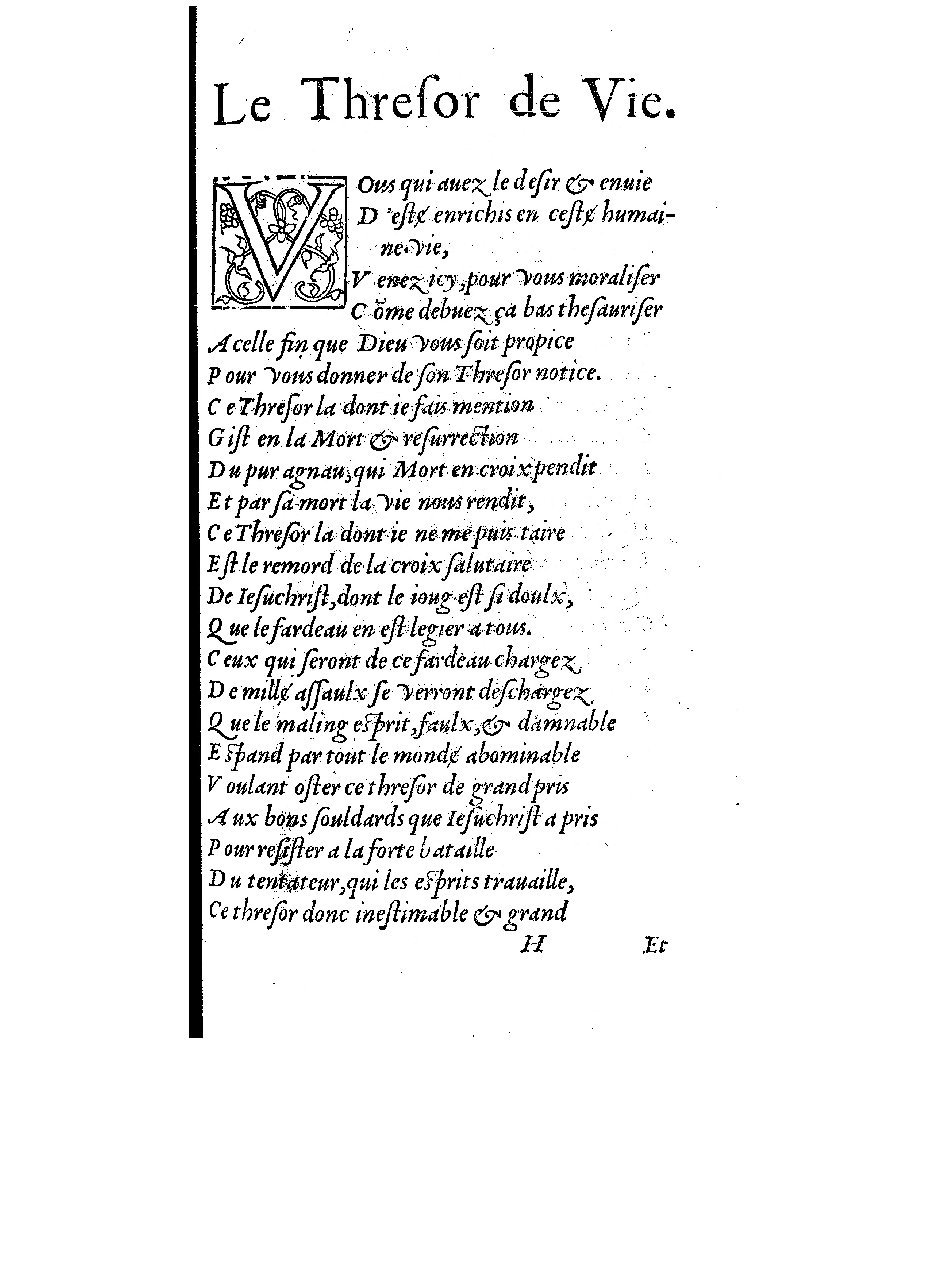 Le Threſor de Vie.
VOus qui auez le deſir & enuie
D'eſtɇ enrichis en ceſtɇ humai-
ne vie,
Venez icy, pour vous moraliſer
Cõme debuez ça bas theſauriſer
A celle fin que Dieu vous ſoit propice
Pour vous donner de ſon Threſor notice.
Ce Threſor la dont ie fais mention
Giſt en la Mort & reſurrection
Du pur agnau, qui Mort en croix pendit
Et par ſa mort la vie nous rendit,
Ce Threſor la dont ie ne me puis taire
Eſt le remord de la croix ſalutaire
De Ieſuchriſt, dont le ioug eſt ſi doulx,
Que le fardeau en eſt legier a tous.
Ceux qui ſeront de ce fardeau chargez,
De millɇ aſſaulx ſe verront deſchargez
Que le maling eſprit, faulx, & damnable
Eſpand par tout le mondɇ abominable
Voulant oſter ce threſor de grand pris
Aux bons ſouldards que Ieſuchriſt a pris
Pour reſiſter a la forte bataille
Du tentateur, qui les eſprits trauaille,
Ce threſor donc ineſtimable & grand
H Et